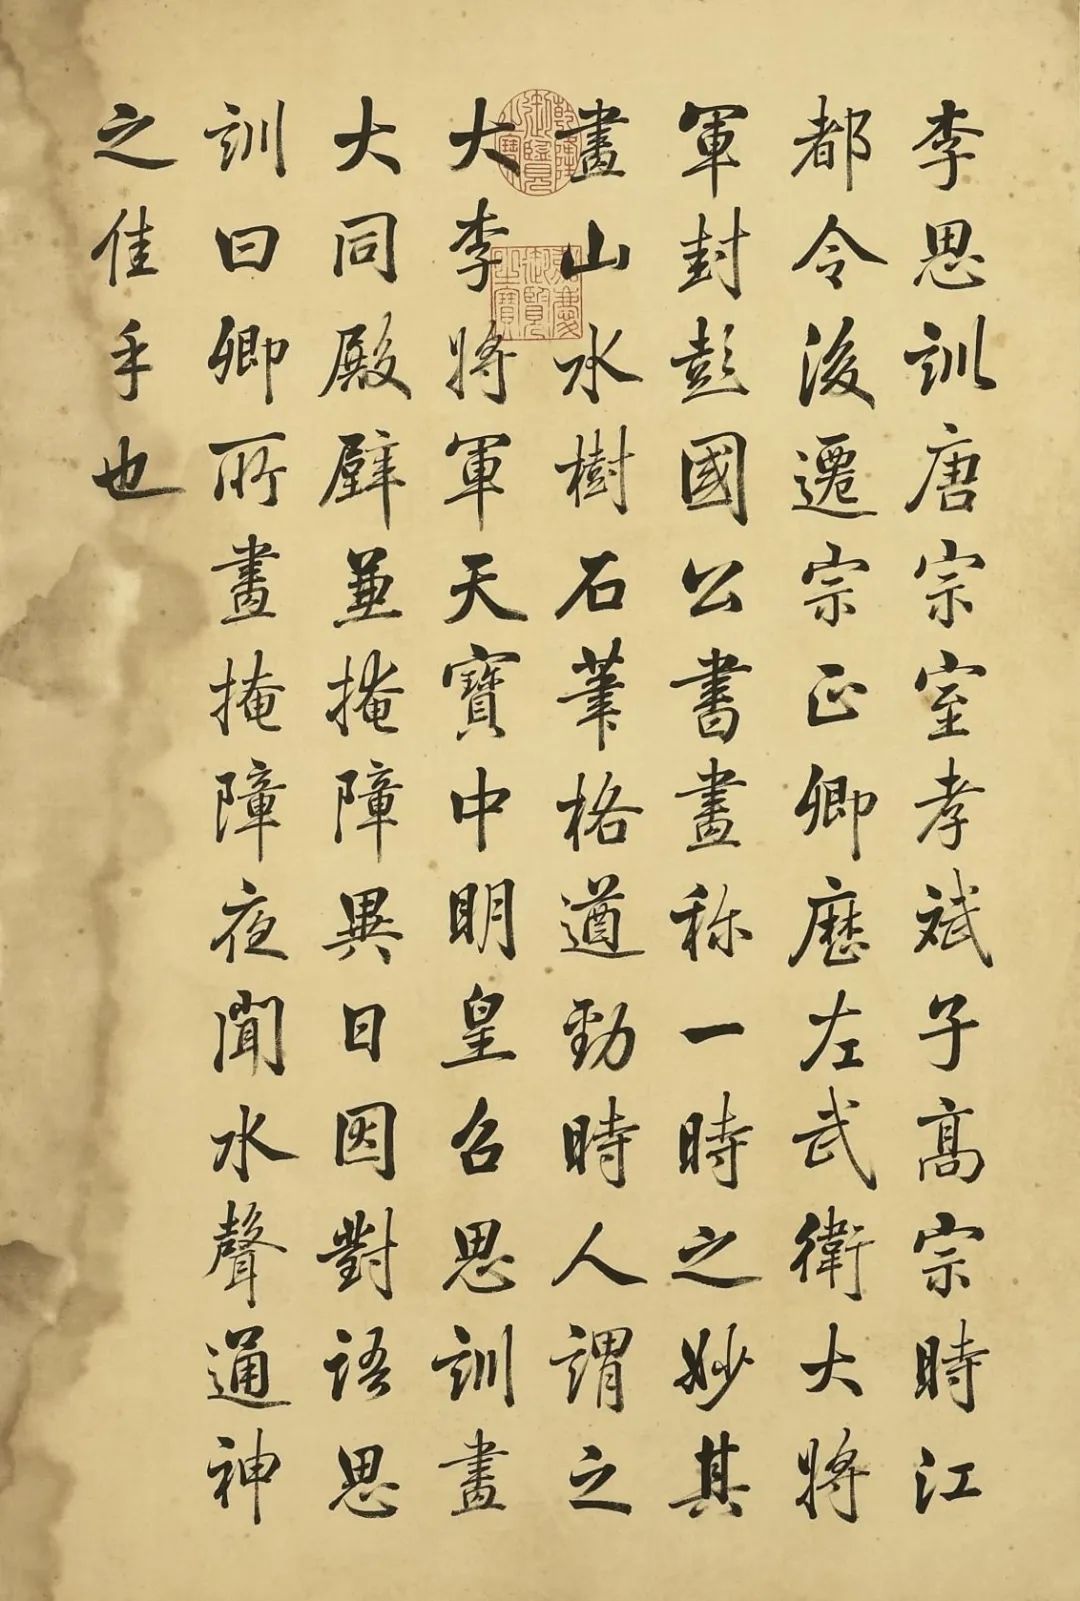 李思訓唐宗室孝斌子高宗時江
都令後遷宗正卿歷左武衛大將
軍封彭國公書畫称一時之妙其
畫山水樹石筆格遒勁時人謂之
大李將軍天寶中明皇召思訓畫
大同殿壁兼掩障異日因對語思
訓曰卿所畫掩障夜聞水聲通神
之佳手也
乾隆御覽之寶
嘉慶御覽之寶